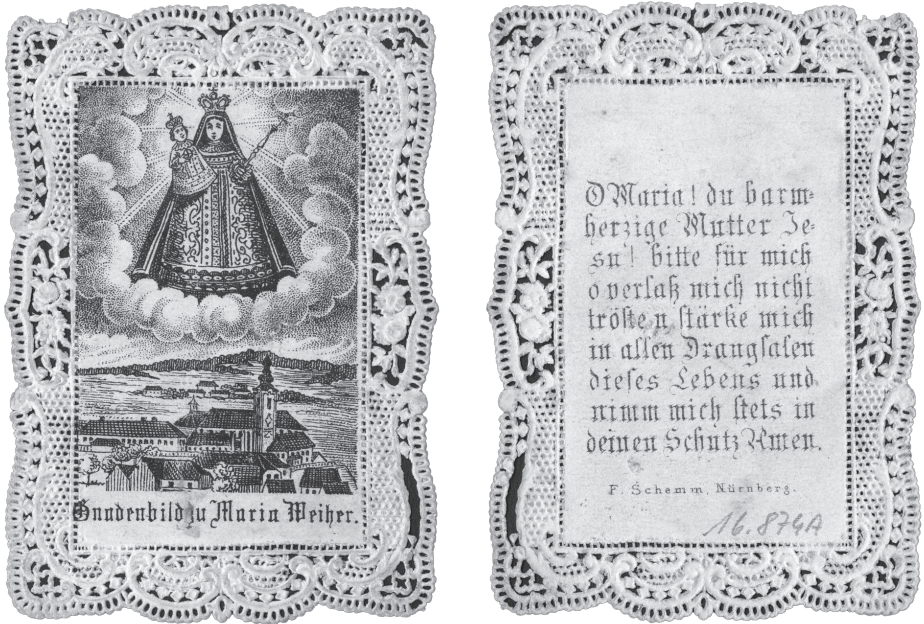 Gnadenbild zu Maria Weiher.
O Maria! du barm-
herzige Mutter Je-
su! bitte für mich
o verlaß mich nicht
tröste n stärke mich
in allen Drangsalen
dieses Lebens und
nimm mich stets in
deinen Schutz Amen.
F. Schemm, Nürnberg.
16.874A